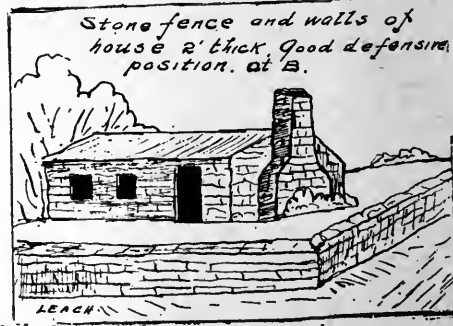 Stone fence and walls of
house 2' thick. Good defensive
position. at B.
LEACH.